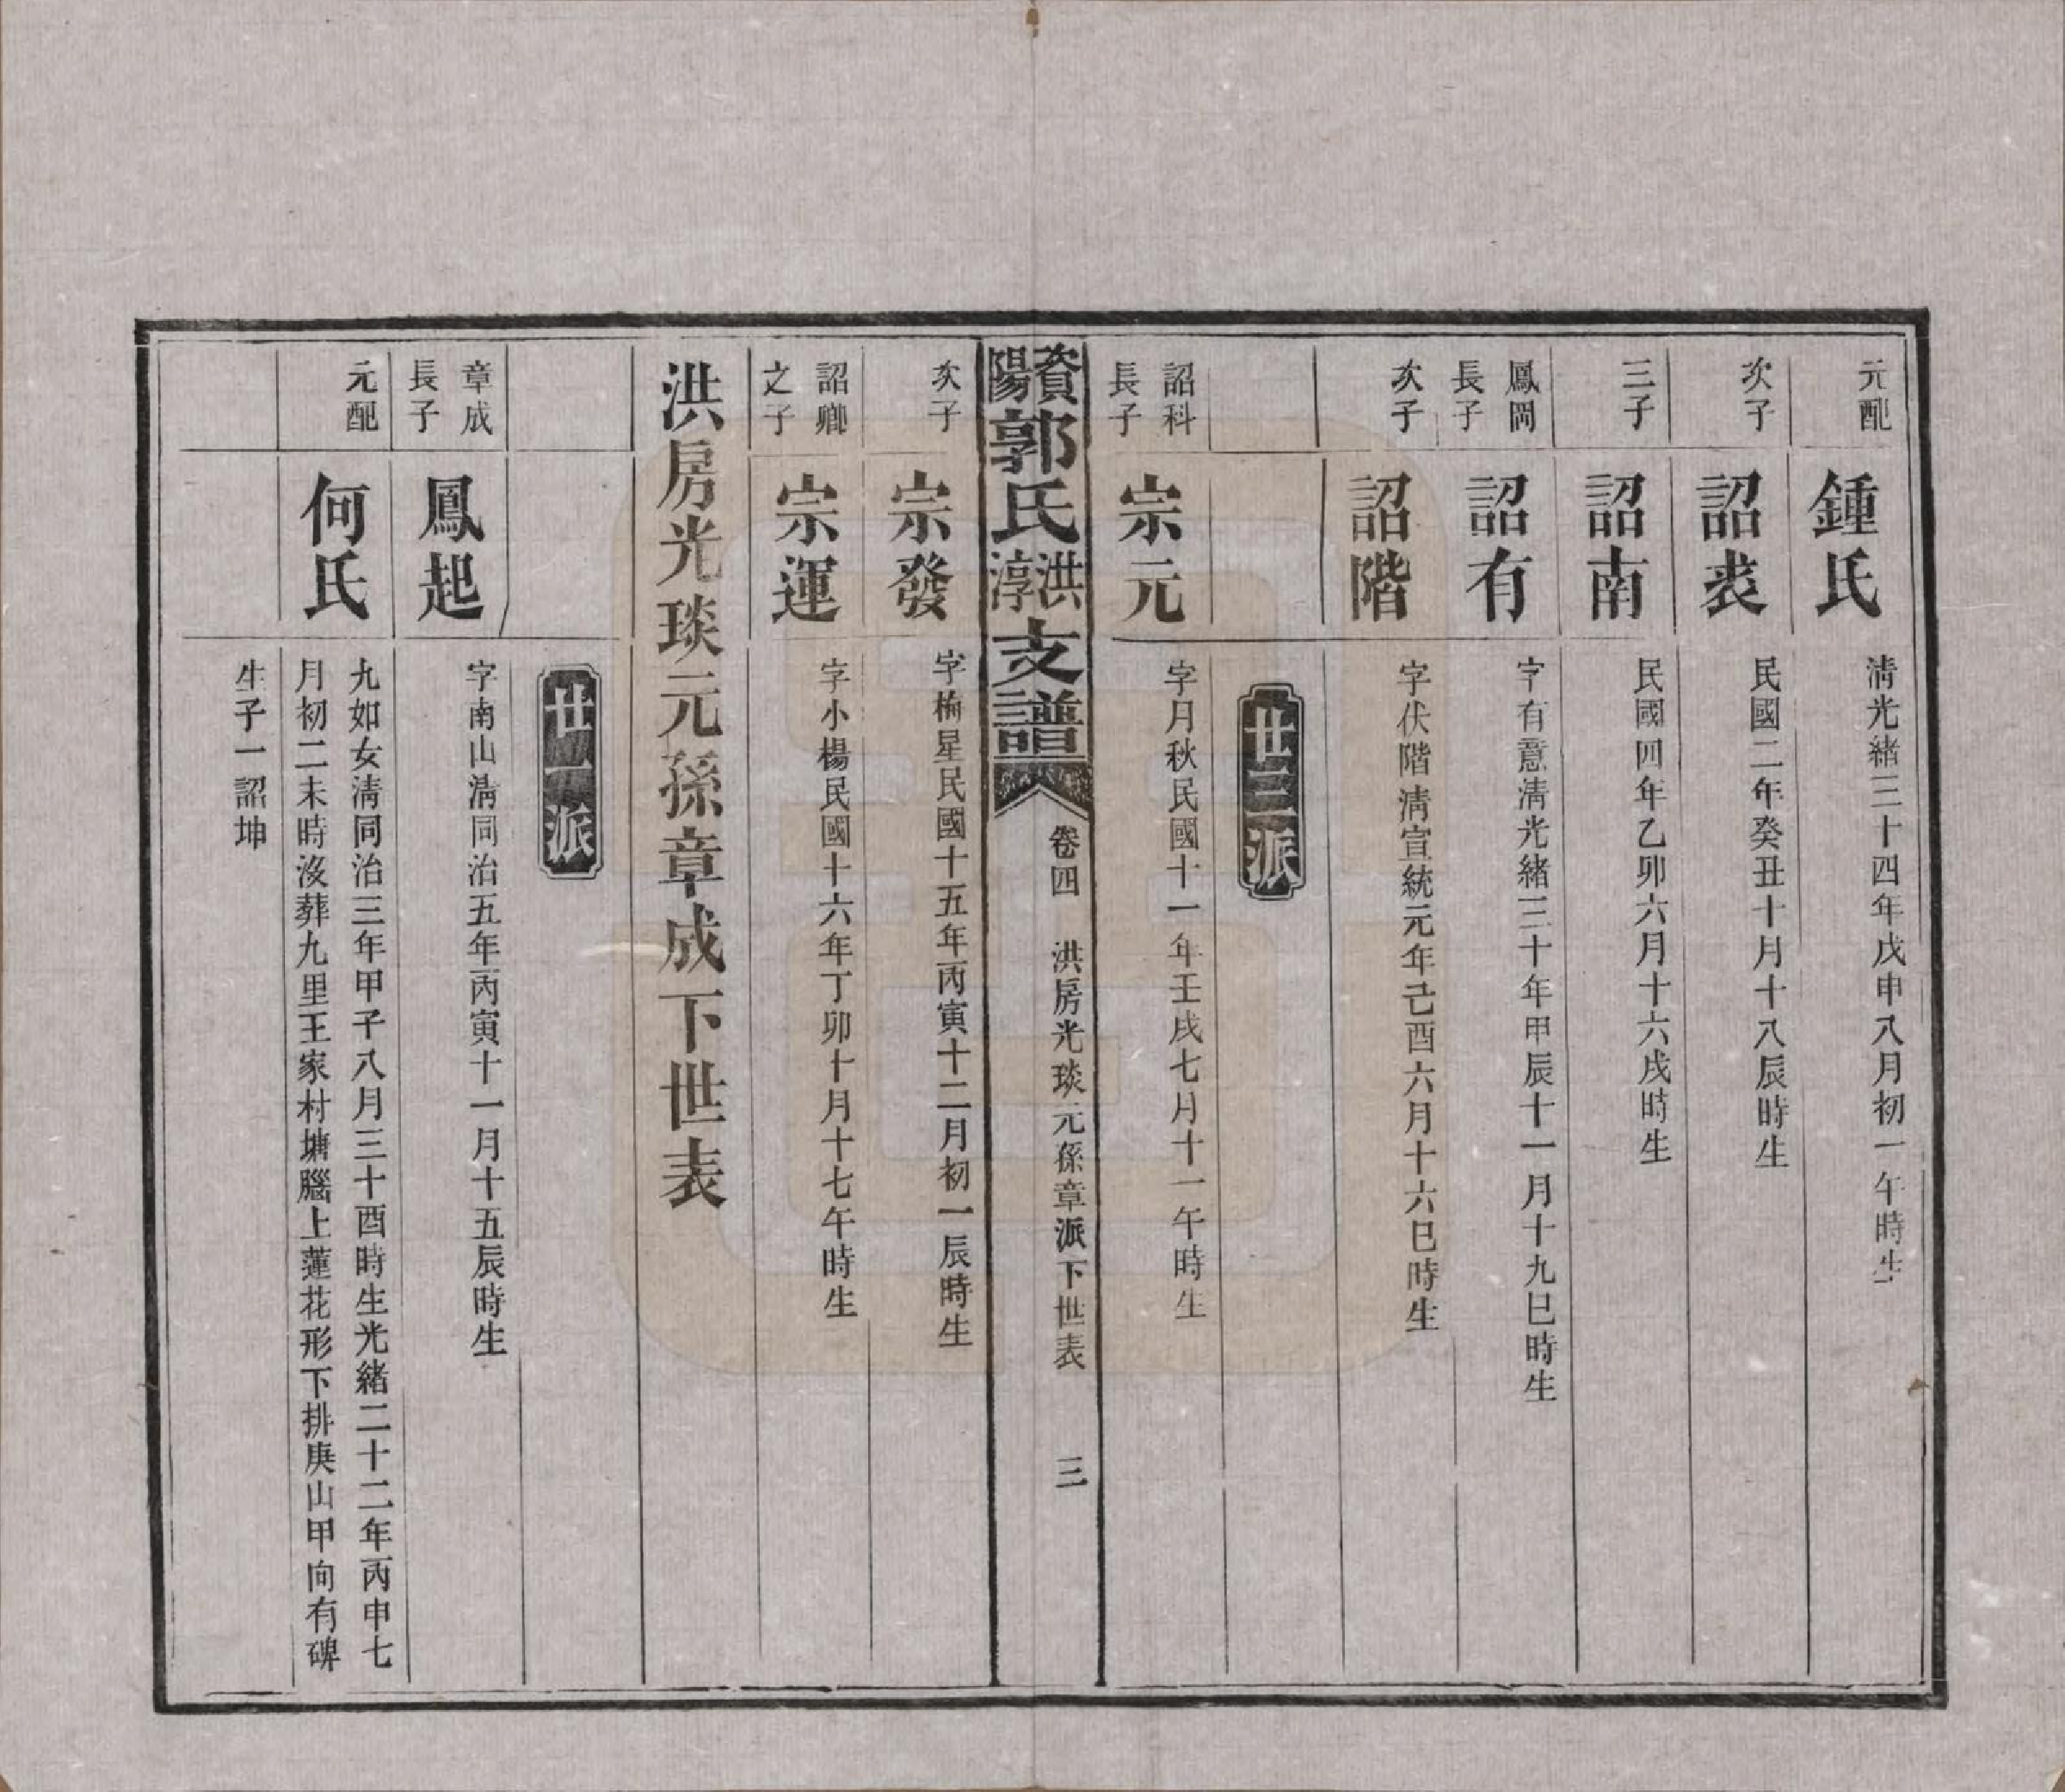 元配
鍾氏
清光緒三十四年戊申八月初一午時生
次子
詔裘
民國二年癸丑十月十八辰時生
三子
詔南
民國四年乙卯六月十六戌時生
鳳岡
長子
詔有
字有意清光緒三十年甲辰十一月十九巳時生
次子
詔階
字伏階清宣統元年己酉六月十六巳時生
世三派
詔科
長子
宗元
字月秋民國十一年壬戌七月十一午時生
資陽郭氏洪淳支譜
卷四
洪房光琰元孫章派下世表
三
次子
宗發
字楡星民國十五年丙寅十二月初一辰時生
詔卿
之子
宗運
字小楊民國十六年丁卯十月十七午時生
洪房光琰元孫章成下世表
世一派
章成
長子
鳳起
字南山清同治五年丙寅十一月十五辰時生
元配
何氏
九如女清同治三年甲子八月三十酉時生光緒二十二年丙申七
月初二未時沒葬九里王家村塘腦上蓮花形下排庚山甲向有碑
生子一詔坤